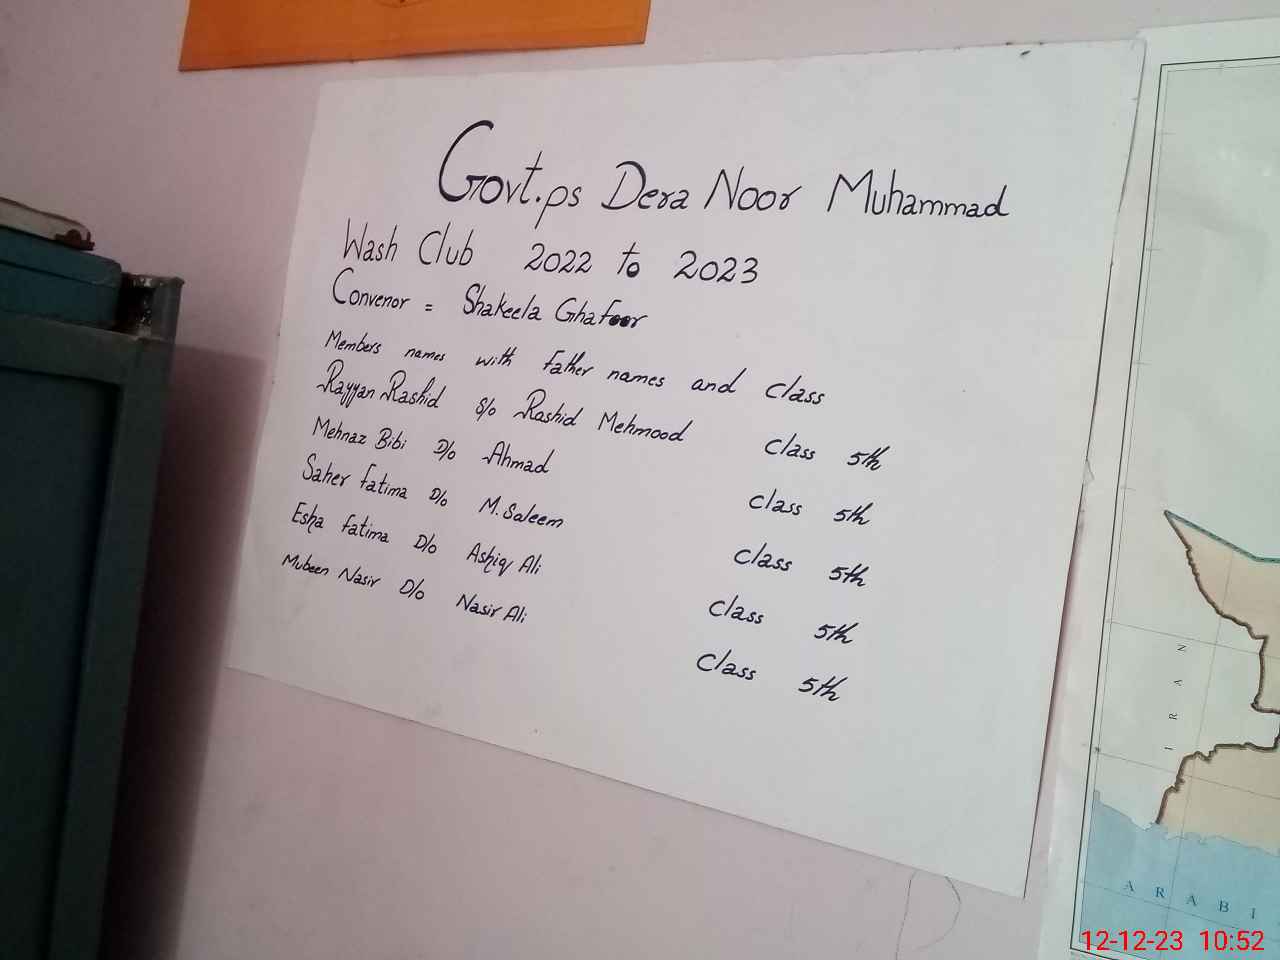 Govt.ps Dera Noor Muhammad
Wash Club 2022 to 2023
Convenor = Shakeela Ghafoor
Members names with father names and class
Rayyan Rashid S/o Rashid Mehmood class 5th
Mehnaz Bibi D/o Ahmad class 5th
Saher fatima D/o M.Saleem class 5th
Esha fatima D/o Ashiq Ali class 5th
Mubeen Nasir D/o Nasir Ali class 5th
IRAN
ARABI
12-12-23 10:52